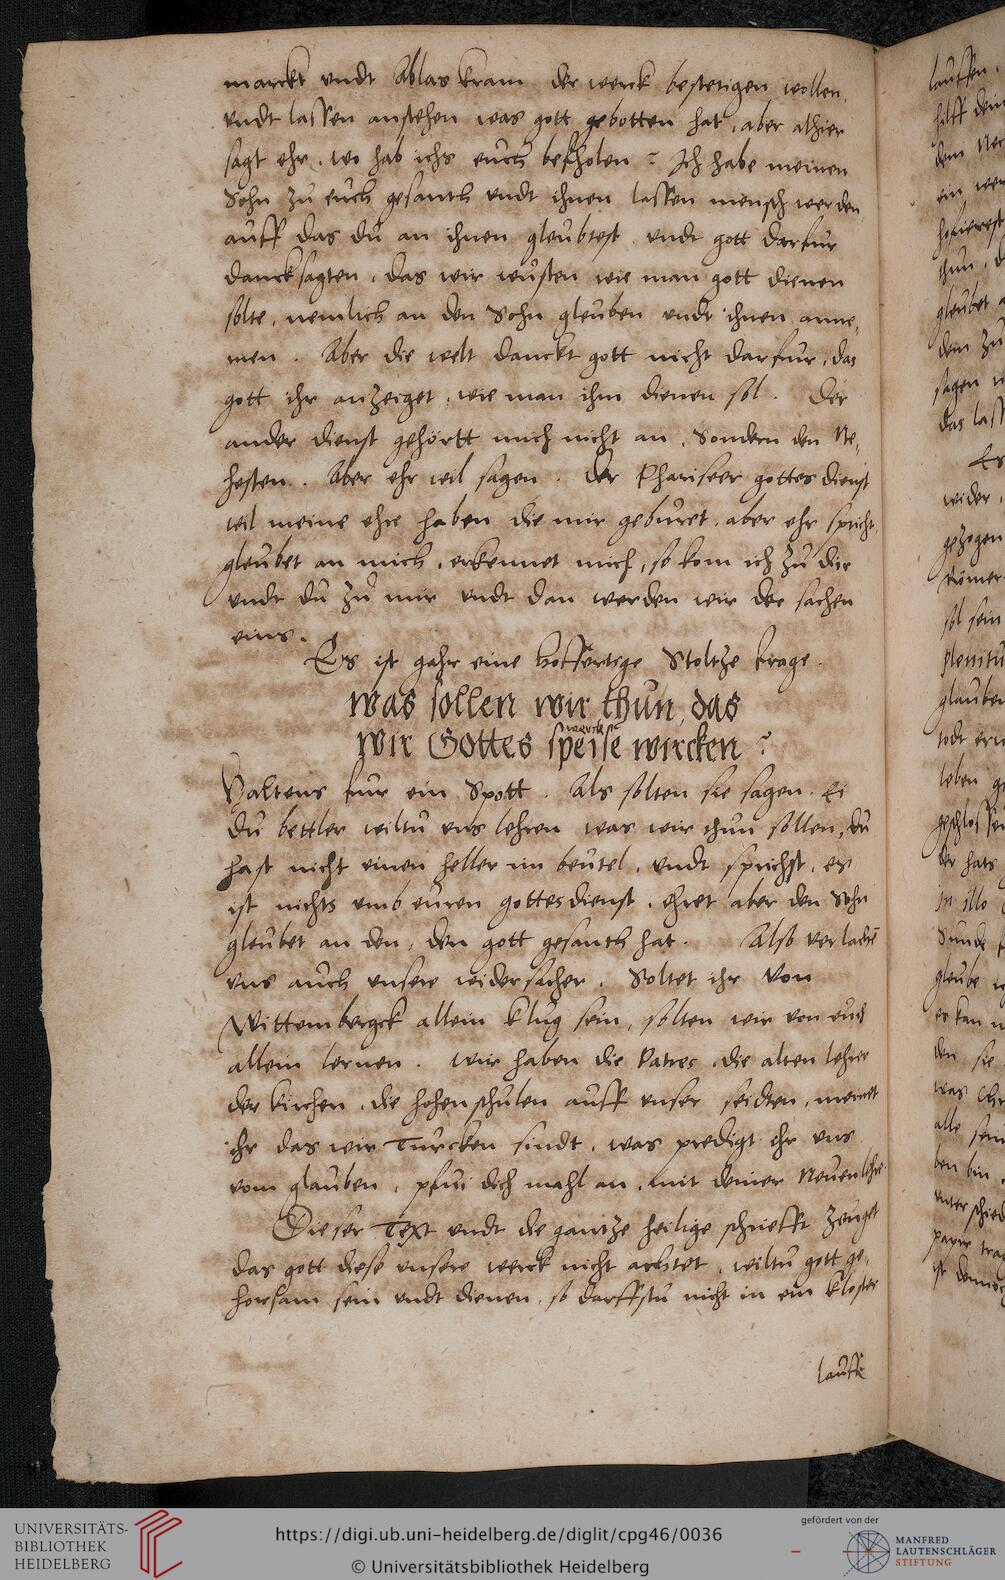 marckt vndt Ablas kram der werck bestetigen wollen,
vndt lassen anstehen was gott gebotten hat, aber alhier
sagt ehr, wo hab ichs euch befholen? Ich habe meinen
Sohn zu euch gesanth vndt ihnen lassen mensch werden
auff das du an ihnen gleubtest, vndt gott darfur
dancksagten, das wir wusten wie man gott dienen
solte, nemlich an den Sohn gleuben vndt ihnen anne,
men. Aber die welt danckt gott nicht darfur, das
gott ihr anzeiget, wie man ihm dienen sol. Der
ander dienst gehörtt mich nicht an, Sondern den Ne,
hesten. Aber ehr wil sagen. der Phariseer gottesdienst
wil meine ehre haben die mir geburet, aber ehr spricht,
gleubet an mich, erkennet mich, so kom ich zu dir
vndt du zu mir vndt dan werden wir der sachen
eins.
Es ist gahr eine hoffertige Stoltze frage.
was sollen wir thun, das
wercke
wir Gottes speise wircken?
Haltens fur ein Spott. Als solten sie sagen. Ei
du bettler wiltu vns lehren was wir thun sollen, du
hast nicht einen heller im beutel, vndt sprichst, es
ist nichts vmb euren gottesdienst, ehret aber den Sohn
gleubet an den, den gott gesanth hat. Also verlachen
vns auch vnsere widersacher. Soltet ihr von
Wittembergck allein klug sein, solten wir von euch
allein lernen. wir haben die Patres, die alten lehrer
der kirchen, die hohenschulen auff vnser seidten, meinet
ihr das wir Turcken sindt, was predigt ihr vns
vom glauben, pfui dich mahl an, mit deiner Neuen lehre.
Dieser Text vndt die gantze heilige schriefft zeuget
das gott diese vnsere werck nicht achtet, wiltu gott ge,
horsam sein vndt dienen, so darffstu nicht in ein kloster
lauffen
lauffen,
hilff dem
dem Nec
ein
thun, d
gleubet a
dem zu
sagen
das lass
Es
wider,
gezogen
Römer
sol sein
glauben
todt
leben ge
der hats
in illo
Sunde
gleube
er kan
den sie
was Chr
alle sein
ben bin,
unterschied
UNIVERSITÄTS-
BIBLIOTHEK
HEIDELBERG
https://digi.ub.uni-heidelberg.de/diglit/cpg46/0036
© Universitätsbibliothek Heidelberg
gefördert von der
MANFRED
LAUTENSCHLÄGER
STIFTUNG